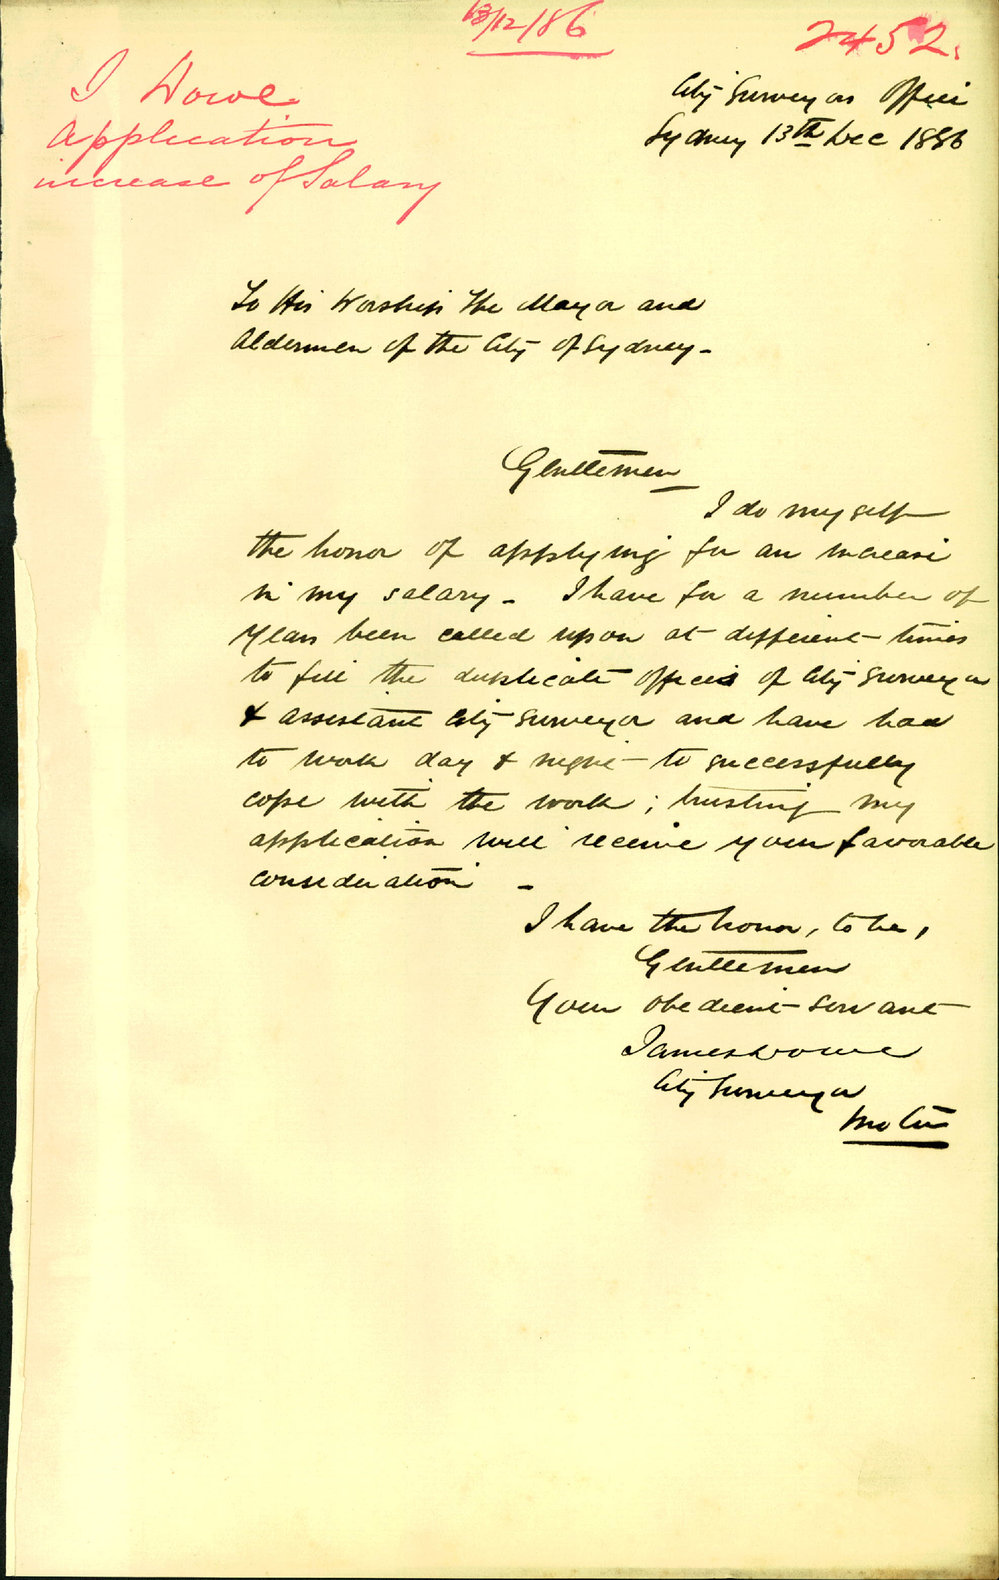 13/12/86
2452.
J Dowe
Application
increase of Salary
City Surveyors Office
Sydney 13th Dec 1886
To His Worship The Mayor and
Aldermen of the City of Sydney -
Gentlemen
I do myself
the honor of applying for an increase
in my salary - I have for a number of
years been called upon at different times
to fill the duplicate offices of City Surveyor
& assistant City Surveyor and have had
to work day & night to successfully
cope with the work; trusting my
application will receive your favorable
consideration -
I have the honor, to be,
Gentlemen
Your obedient servant
James Dowe
City Surveyor